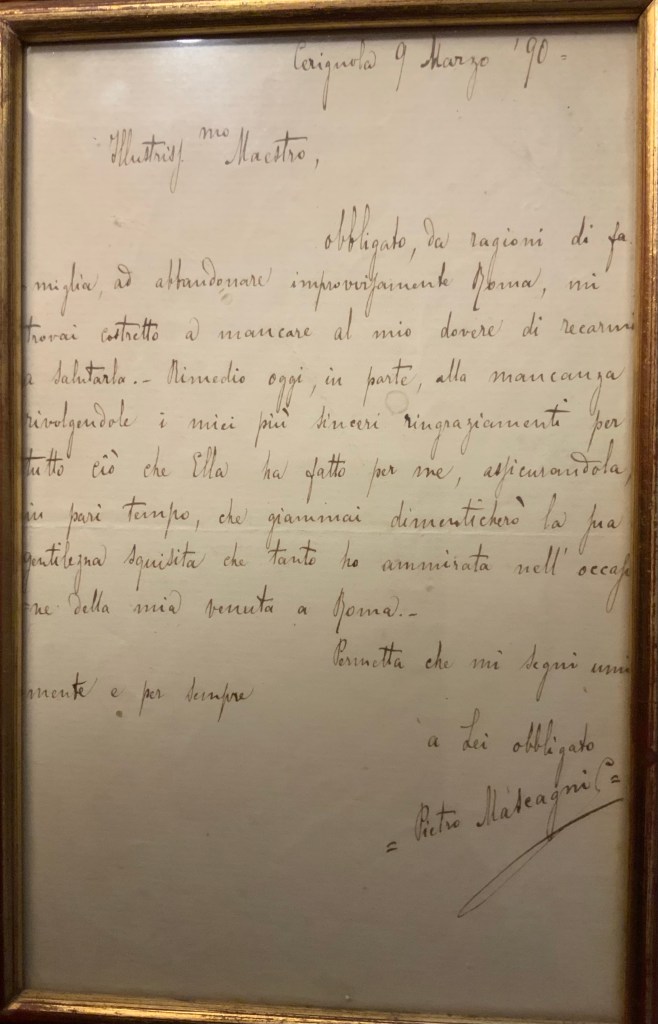 Cerignola 9 Marzo '90 =
Illustriss.mo Maestro,
obbligato, da ragioni di fa-
miglia, ad abbandonare improvvisamente Roma, mi
trovai costretto a mancare al mio dovere di recarmi
a salutarla. - Rimedio oggi, in parte, alla mancanza
rivolgendole i miei più sinceri ringraziamenti per
tutto ciò che Ella ha fatto per me, assicurandola,
in pari tempo, che giammai dimenticherò la sua
gentilezza squisita che tanto ho ammirata nell'occasi
one della mia venuta a Roma. -
Permetta che mi segni umil
mente e per sempre
a Lei obbligato
= Pietro Mascagni =